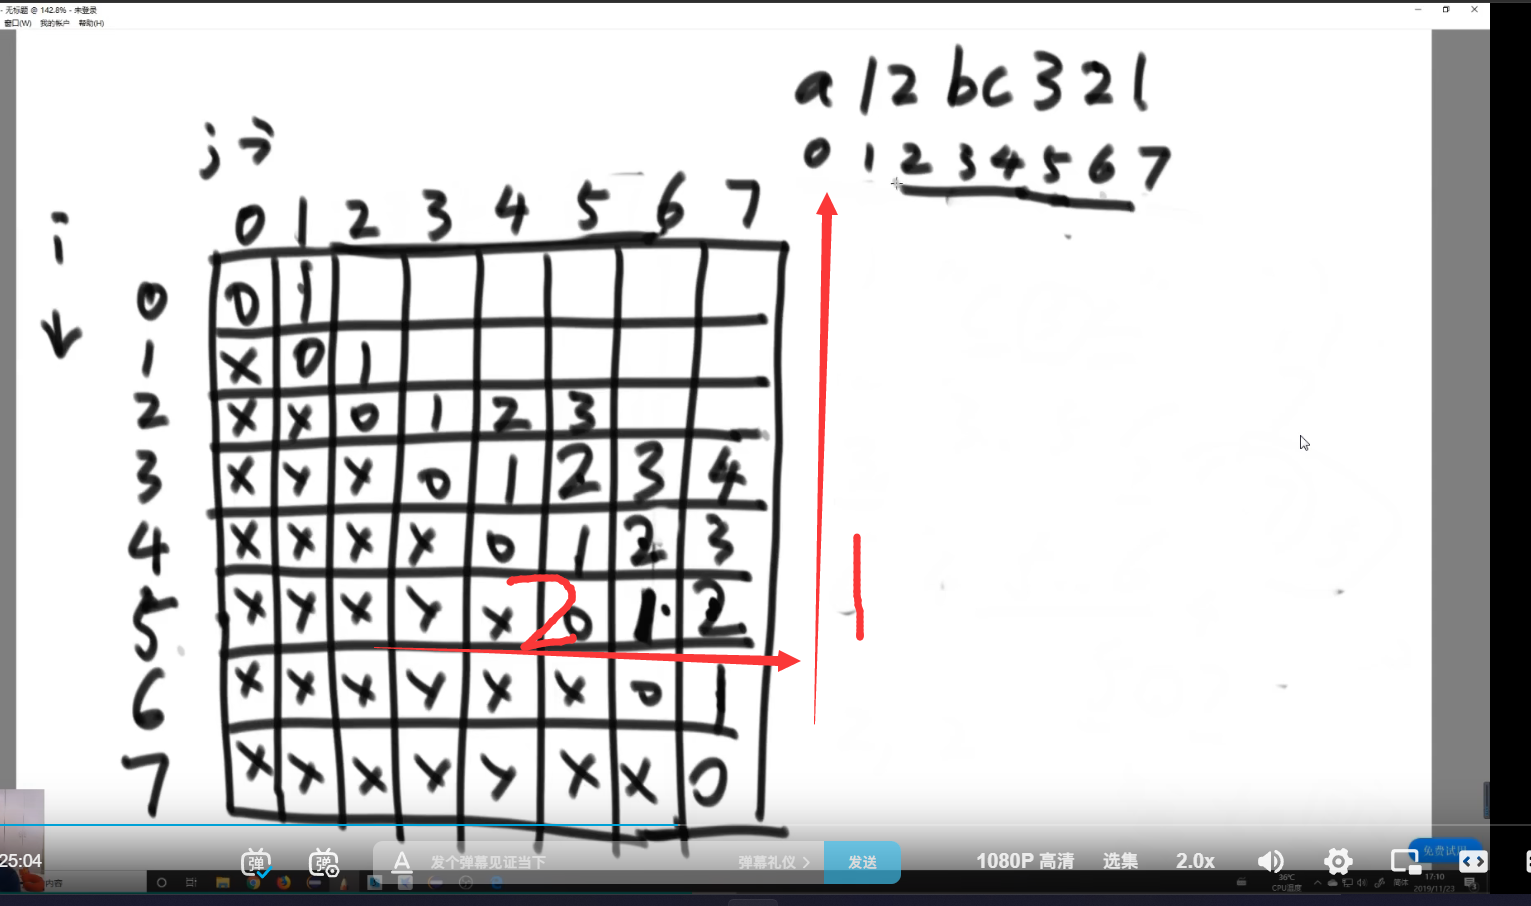 - 无标题 @ 142.8% - 未登录
窗口(W) 我的帐户 帮助(H)
a 1 2 b c 3 2 1
0 1 2 3 4 5 6 7
j→
i
0 1 2 3 4 5 6 7
0 0 1
1 X 0 1
2 X X 0 1 2 3
3 X X X 0 1 2 3 4
4 X X X X 0 1 2 3
5 X X X X X 0 1 2
6 X X X X X X 0 1
7 X X X X X X X 0
1
2
25:04
弹 弹 A 发个弹幕见证当下 弹幕礼仪 > 发送 1080P 高清 选集 2.0x
免费试用
内容
36°C
CPU温度
简体
17:10
2019/11/23